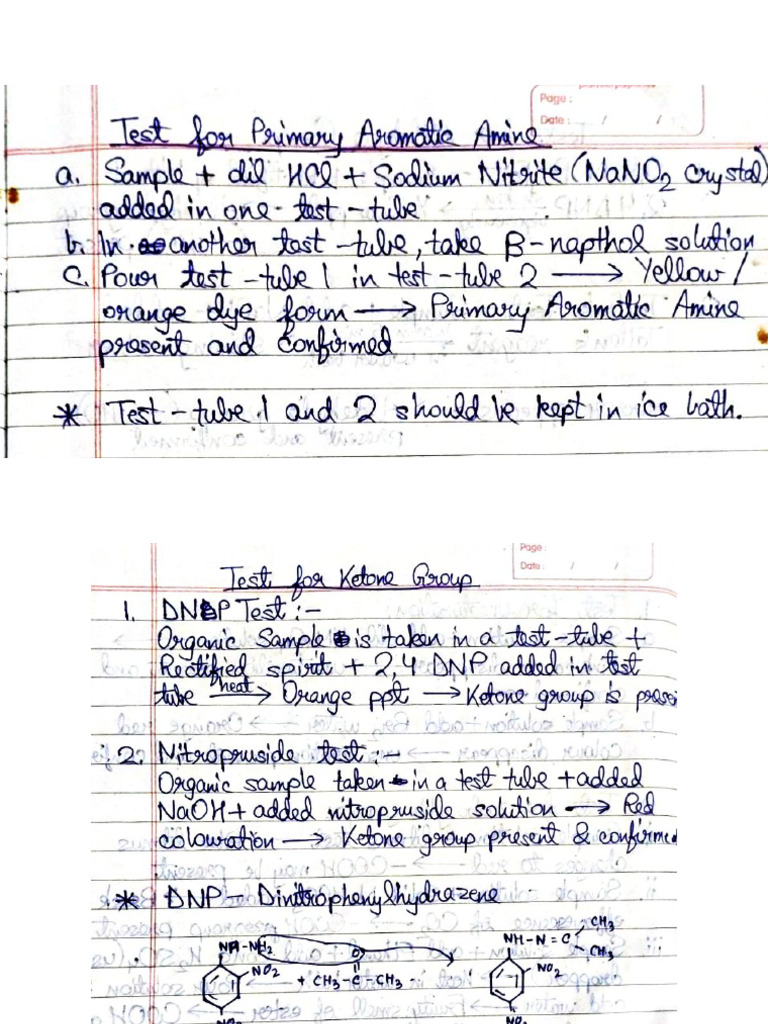 Page :
Date : / /
Test for Primary Aromatic Amine
a. Sample + dil HCl + Sodium Nitrite (NaNO2 crystal)
added in one test-tube
b. In another test-tube, take β-napthol solution
c. Pour test-tube 1 in test-tube 2 → Yellow /
orange dye form → Primary Aromatic Amine
present and confirmed
* Test-tube 1 and 2 should be kept in ice bath.
Page :
Date : / /
Test for Ketone Group
1. DNP Test :-
Organic Sample is taken in a test-tube +
Rectified spirit + 2,4 DNP added in test
tube heat → Orange ppt → Ketone group is presen
2. Nitropruside test :-
Organic sample taken in a test tube + added
NaOH + added nitropruside solution → Red
colouration → Ketone group present & confirmed
* DNP - Dinitrophenylhydrazene
NH-NH2 O NH-N=C CH3
CH3
NO2 + CH3-C-CH3 NO2
NO2 NO2